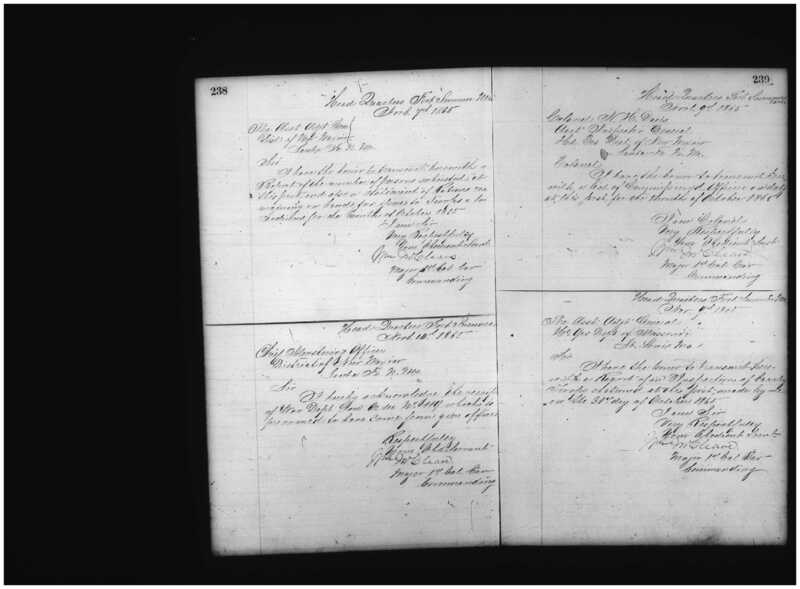 238
Head Quarters Fort Sumner N.M.
Nov. 7th 1865
Asst Adjt Gen
Dist. of New Mexico
Santa Fe N.M.
Sir
I have the honor to transmit herewith a
Report of the number of persons subsisted at
this post and also a Statement of Rations
on hand for issue to
Indians for the month of October 1865
I am Sir
Very Respectfully
Your Obedient Servt
McCleave
Major 1st Cal Cav
Commanding
Head Quarters Fort Sumner
Nov. 1865
Chief Mustering Officer
District of New Mexico
Santa Fe N. Mex
Sir
I hereby acknowledge the receipt
of War Dept Genl Order No.
to have come from your office
Respectfully
Your Obt Servant
McCleave
Major 1st Cal Cav
Commanding
239
Head Quarters Fort Sumner
Nov. 9th 1865
Colonel N. H. Davis
Asst Inspector General
Hd. Qrs Dist. of New Mexico
Santa Fe N.M.
Colonel
I have the honor to transmit here
with a list of Commissioned Officers
at this post for the month of October 1865
I am Colonel
Very Respectfully
Your Obedient Servt
McCleave
Major 1st Cal Cav
Commanding
Head Quarters Fort Sumner N.M.
Nov. 9th 1865
Asst Adjt General
Hd. Qrs Dept of Missouri
St. Louis Mo.
Sir
I have the honor to transmit here
with a Report of an Inspection of Cavalry
Troops stationed at this Post, made by me
on the 31st day of October 1865
I am Sir
Very Respectfully
Your Obedient Servt
McCleave
Major 1st Cal Cav
Commanding